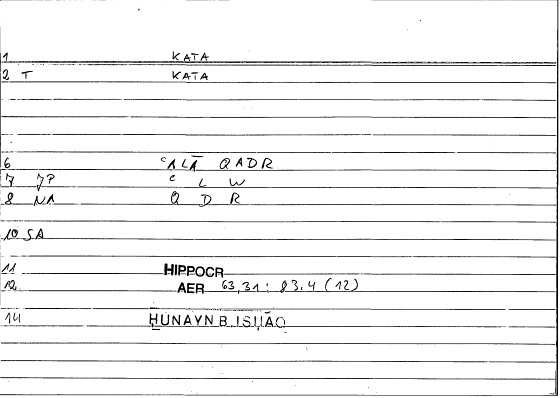 1 KATA
2 T KATA
6 ᶜALĀ QADR
7 JP ᶜ L W
8 NA Q D R
10 SA
11 HIPPOCR
12 AER 63,31 : 83.4 (12)
14 ḤUNAYN B. ISḤĀQ